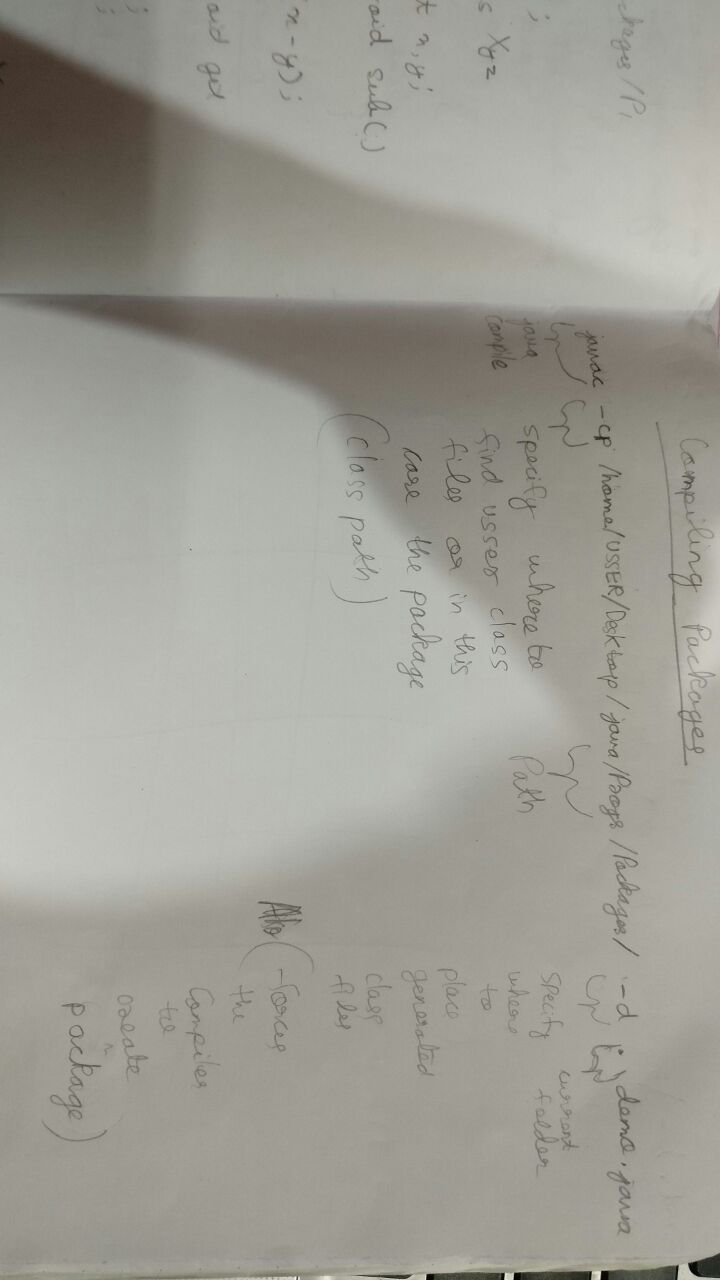 ckages/P1
;
s Xyz
t x,y;
oid sub(.)
x-y);
oid get
;
;
Compiling Packages
javac -cp /home/USSER/Desktop/java/Progs/Packages/ -d . demo.java
java
compile
specify where to
find usser class
files or in this
case the package
(class path)
Path
specify
where
to
place
generated
class
files
Also (-forces
the
Compiler
to
create
package)
current
folder